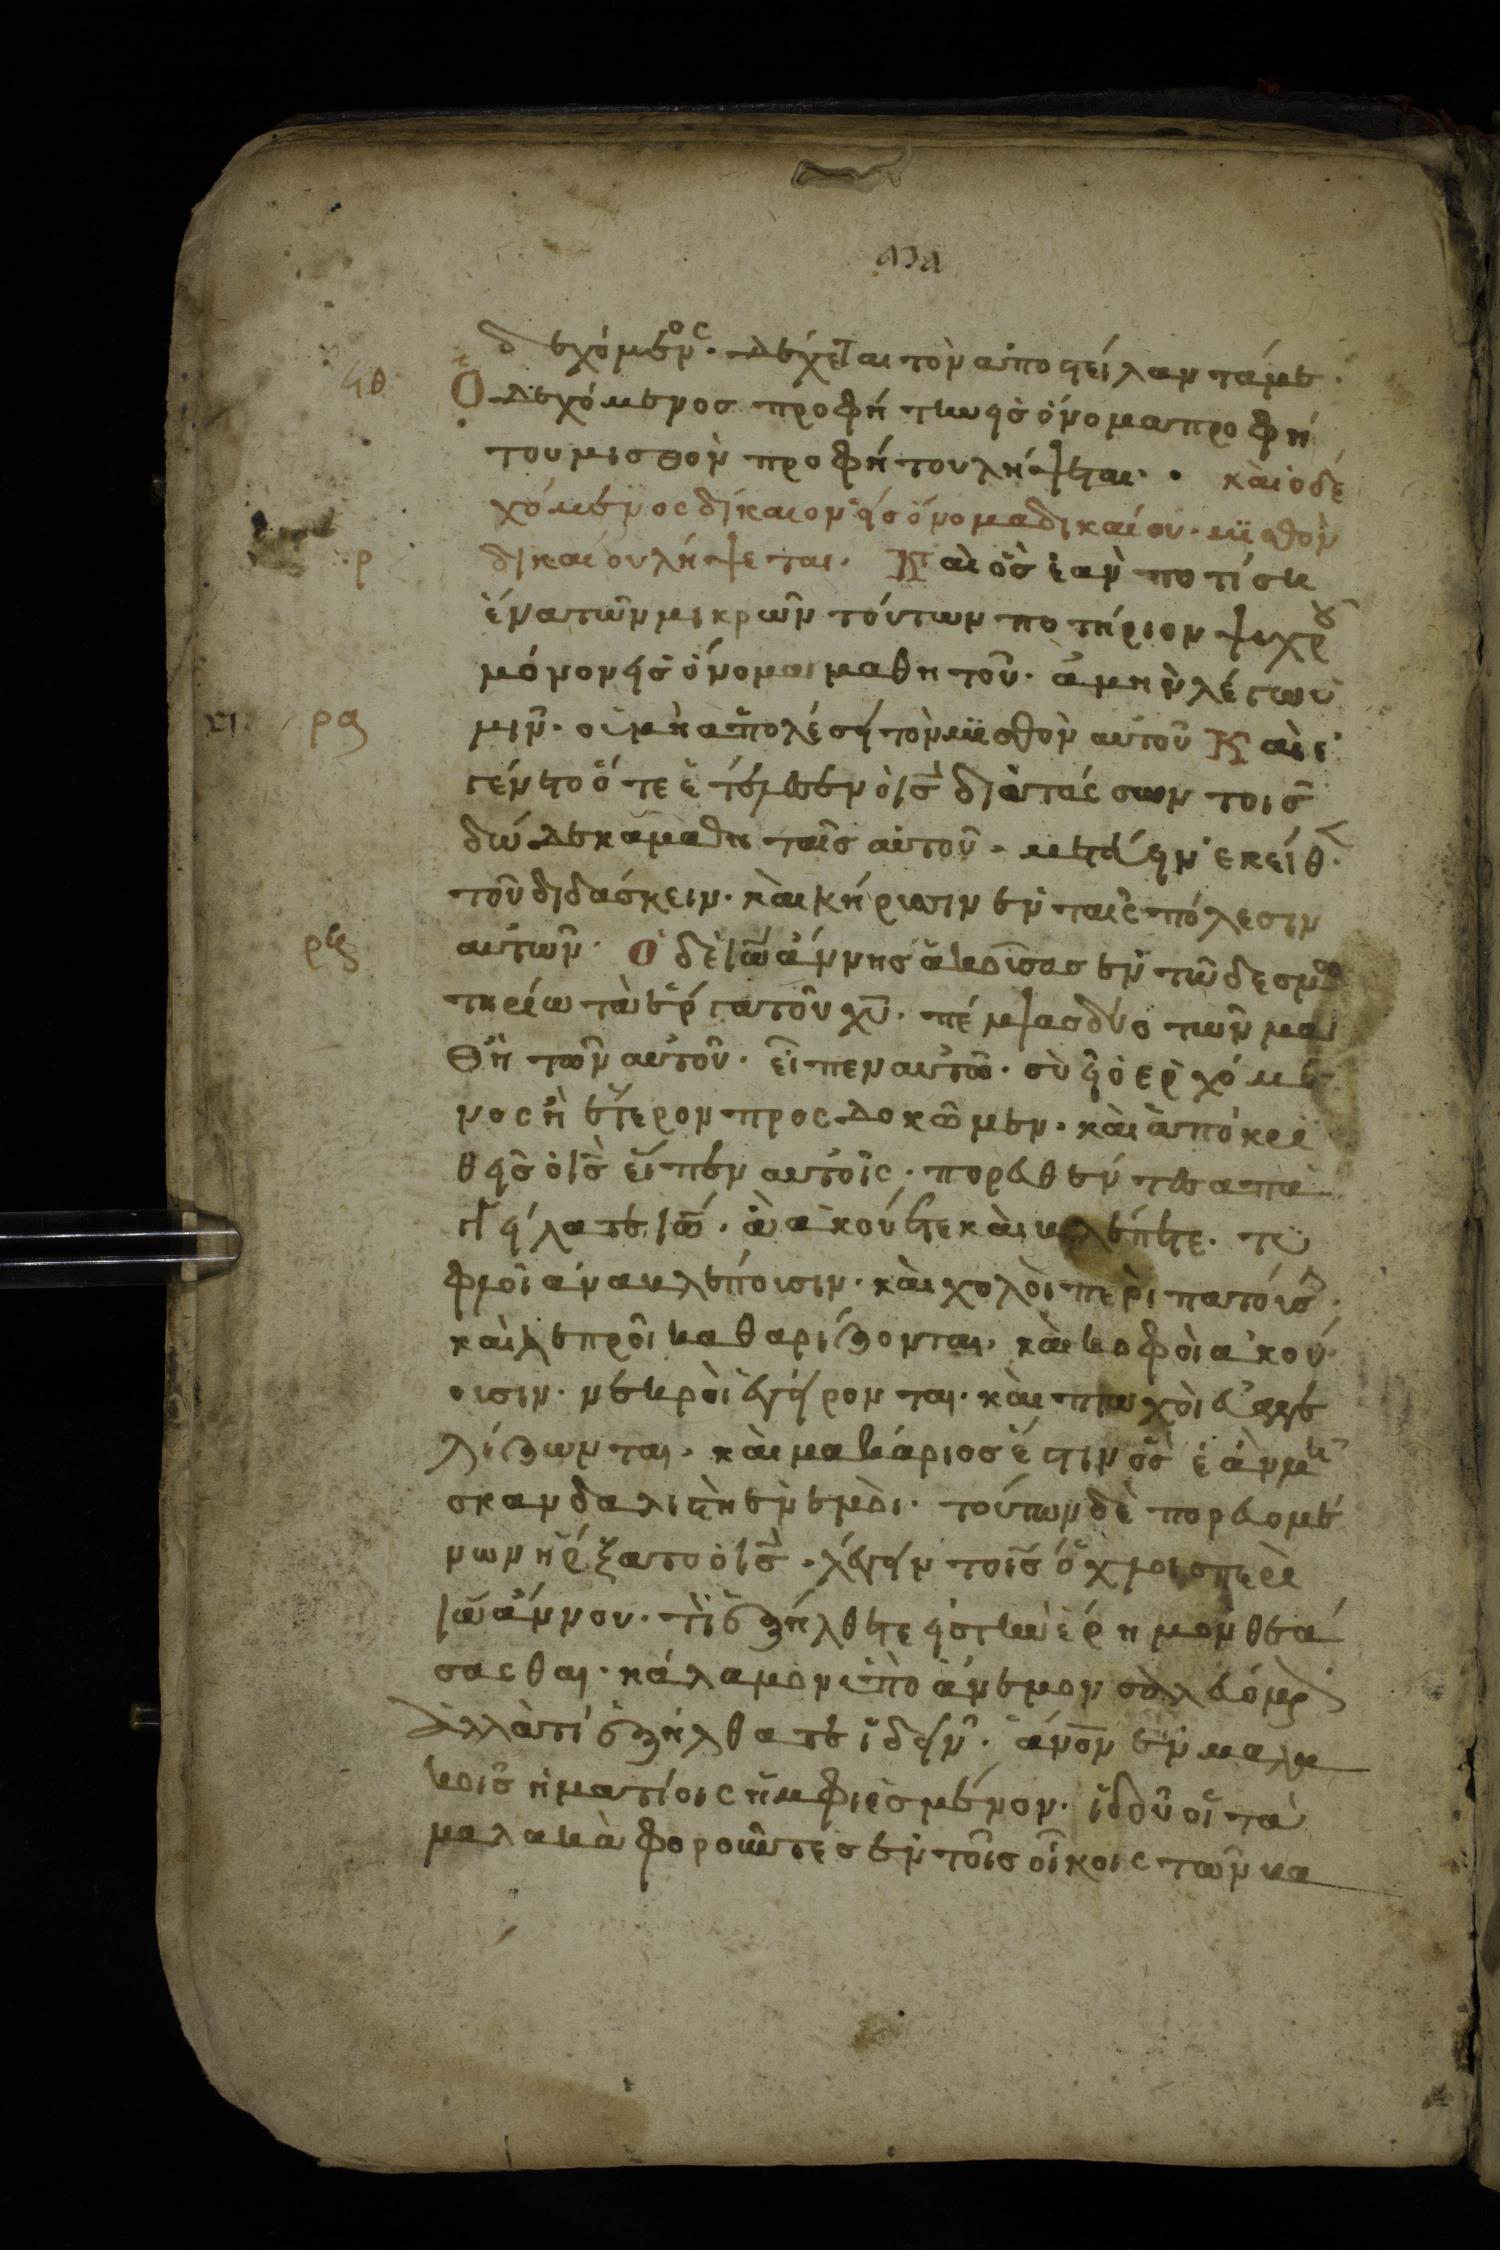 δεχόμενος. δέχεται τὸν ἀποστείλαντάμε.
ϟθ Ὁ δεχόμενος προφήτην εἰς ὄνομα προφή
του μισθὸν προφήτου λήψεται. καὶ ὁ δε
χόμενος δίκαιον εἰς ὄνομα δικαίου. μισθὸν
ρ δικαίου λήψεται. Καὶ ὃς ἐὰν ποτίση
ἕνα τῶν μικρῶν τούτων ποτήριον ψυχροῦ
μόνον εἰς ὄνομα μαθητοῦ. ἀμὴν λέγω ὑ
ρα μῖν. οὐ μὴ ἀπολέση τὸν μισθὸν αὐτοῦ Καὶ ἐ
γένετο ὅτε ἐτέλεσεν ὁ ις διατάσσων τοῖς
δώδεκα μαθηταῖς αὐτοῦ. μετέβην ἐκεῖθεν
τοῦ διδάσκειν. καὶ κηρύσσιν ἐν ταῖς πόλεσιν
ρβ αὐτῶν. Ὁ δὲ ἰωάννης ἀκούσας ἐν τῶ δεσμω
τηρίω τὰ ἔργα τοῦ χυ. πέμψας δύο τῶν μα
θητῶν αὐτοῦ. εἶπεν αὐτῶ. σὺ εἶ ὁ ἐρχόμε
νος ἢ ἕτερον προςδοκῶμεν. καὶ ἀποκρι
θεὶς ὁ ις εἶπεν αὐτοῖς. πορευθέντες ἀπα
γγείλατε ἰω. ἃ ἀκούετε καὶ βλέπετε. τυ
φλοὶ ἀναβλέπουσιν. καὶ χολοὶ περιπατοῦσ.
καὶ λεπροὶ καθαρίζονται. καὶ κοφοὶ ἀκού
ουσιν. νεκροὶ ἐγείρονται. καὶ πτωχοὶ εὐαγγε
λίζωνται. καὶ μακάριος ἐστιν ὃς ἐὰν μὴ
σκανδαλισθη ἐν ἐμοὶ. τούτων δὲ πορευομέ
νων ἤρξατο ὁ ις. λέγειν τοῖς ὄχλοις περὶ
ἰωάννου. τί ἐξήλθετε εἰς τὴν ἔρημον θεά
σασθαι. κάλαμον ὑπὸ ἀνέμου σαλευόμενον
Ἀλλὰ τί ἐξήλθατε ἰδεῖν. ἄνον ἐν μαλα
κοῖς ἡματίοις ἠμφιεσμένον. ἰδοῦ οἱ τὰ
μαλακὰ φοροῦντες ἐν τοῖς οἴκοις τῶν βα